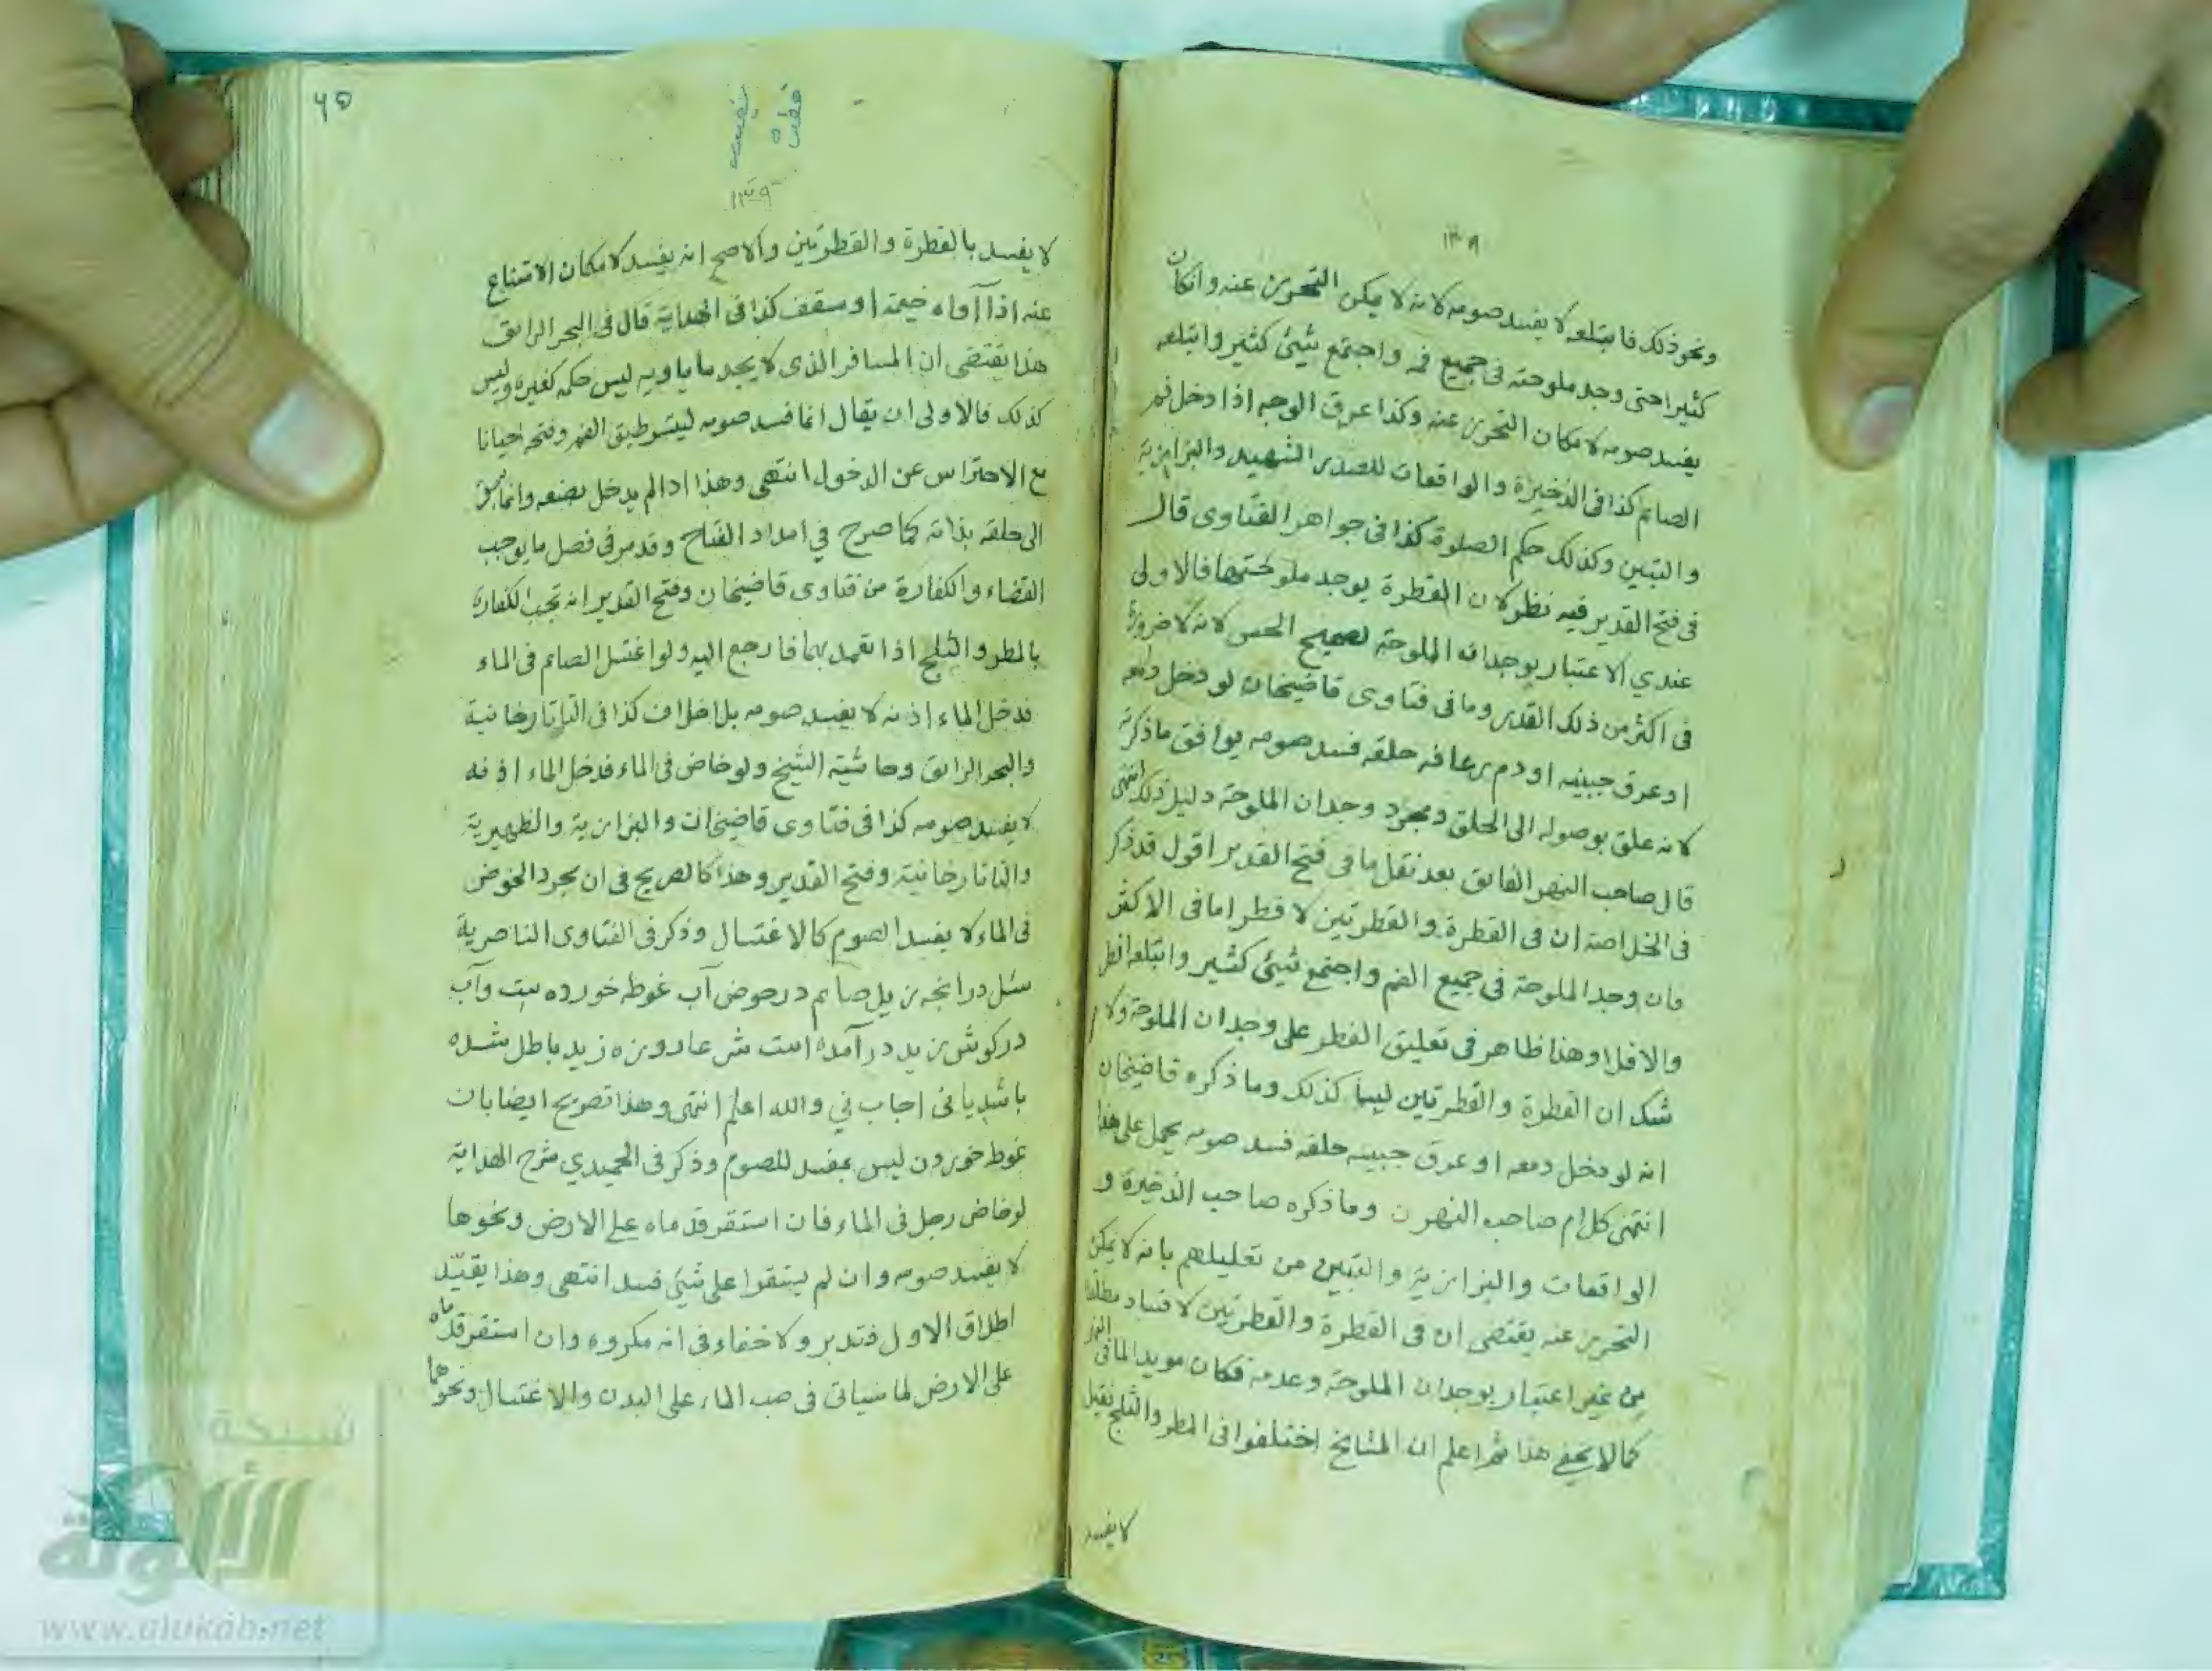 ١٣٨
ونحو ذلك فابتلعه لا يفسد صومه لانه لا يمكن التحرز عنه وانكان
كثيرا حتى وجد ملوحته فى جميع فمه واجتمع شيئ كثير وابتلعه
يفسد صومه لامكان التحرز عنه وكذا عرق الوجه اذا دخل فم
الصائم كذا فى الذخيرة والواقعات للصدر الشهيد والبزازية
والتبين وكذلك حكم الصلوة كذا فى جواهر الفتاوى قال
فى فتح القدير فيه نظر لان القطرة يوجد ملوحتها فالاولى
عندي الاعتبار بوجدان الملوحة لصحيح الحس لانه لا ضرورة
فى اكثر من ذلك القدر وما فى فتاوى قاضيخان لو دخل دمعه
اوعرق جبينه او دم رعافه حلقه فسد صومه يوافق ماذكرته
لانه علق بوصوله الى الحلق ومجرد وجدان الملوحة دليل ذلك انتهى
قال صاحب النهر الفايق بعد نقل ما فى فتح القدير اقول قد ذكر
فى الخلاصة ان فى القطرة والقطرتين لا فطر اما فى الاكثر
فان وجد الملوحة فى جميع الفم واجتمع شيئ كثير وابتلعه افطر
والافلا وهذا ظاهر فى تعليق الفطر على وجدان الملوحة ولا
شك ان القطرة والقطرتين ليسا كذلك وما ذكره قاضيخان
انه لو دخل دمعه او عرق جبينه حلقه فسد صومه يحمل على هذا
انتهى كلام صاحب النهر وماذكره صاحب الذخيرة و
الواقعات والبزازية والتبين من تعليلهم بانه لا يمكن
التحرز عنه يقتضى ان فى القطرة والقطرتين لا فساد مطلقا
من غير اعتبار بوجدان الملوحة وعدمه فكان مويدا لما فى النهر
كما لا يخفى هذا ثم اعلم ان المشايخ اختلفوا فى المطر والثلج فقيل
لا يفسد
٦٥
١٣٩
لا يفسد بالقطرة والقطرتين والاصح انه يفسد لامكان الامتناع
عنه اذا آواه خيمة او سقف كذا فى الهداية قال فى البحر الرائق
هذا يقتضى ان المسافر الذى لا يجد ما ياويه ليس حكمه كغيره وليس
كذلك فالاولى ان يقال انما فسد صومه ليتسر طبق الفم وفتحه احيانا
مع الاحتراس عن الدخول انتهى وهذا اذا لم يدخل بصنعه وانما سبق
الى حلقه بذاته كما صرح في امداد الفتاح وقد مر فى فصل ما يوجب
القضاء والكفارة من فتاوى قاضيخان وفتح القدير انه تجب الكفارة
بالمطر والثلج اذا تعمد بهما فارجع اليه ولو اغتسل الصائم فى الماء
فدخل الماء اذنه لا يفسد صومه بلا خلاف كذا فى التاتارخانية
والبحر الرائق وحاشية الشيخ ولو خاض فى الماء فدخل الماء اذنه
لا يفسد صومه كذا فى فتاوى قاضيخان والبزازية والظهيرية
والتاتارخانية وفتح القدير وهذا كالصريح فى ان مجرد الخوض
فى الماء لا يفسد الصوم كالاغتسال وذكر فى الفتاوى الناصرية
سئل در انجه زيد صائم در حوض آب غوطه خورده ست وآب
در كوش زيد در آمده است شرعا روزه زيد باطل شده
باشد يا نى اجاب ني والله اعلم انتهى وهذا تصريح ايضا بان
غوطه خوردن ليس بمفسد للصوم وذكر فى الحميدي شرح الهداية
لو خاض رجل فى الماء فان استقر قدماه على الارض ونحوها
لا يفسد صومه وان لم يستقرا على شيئ فسد انتهى وهذا يقيّد
اطلاق الاول فتدبر ولا خفاء فى انه مكروه وان استقر قدماه
على الارض لما سياتى فى صب الماء على البدن والاغتسال ونحوهما
شبكة
الألوكة
www.alukah.net